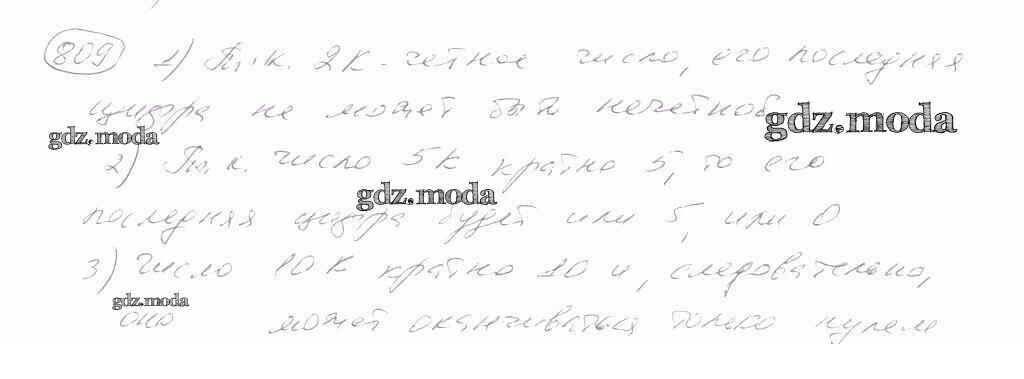 809 1) Т.к. 2К - четное число, его последняя
цифра не может быть нечетной
gdz.moda
gdz.moda
2) Т.к. число 5К кратно 5, то его
gdz.moda
последняя цифра будет или 5, или 0
3) Число 10К кратно 10 и, следовательно,
gdz.moda
оно может оканчиваться только нулем